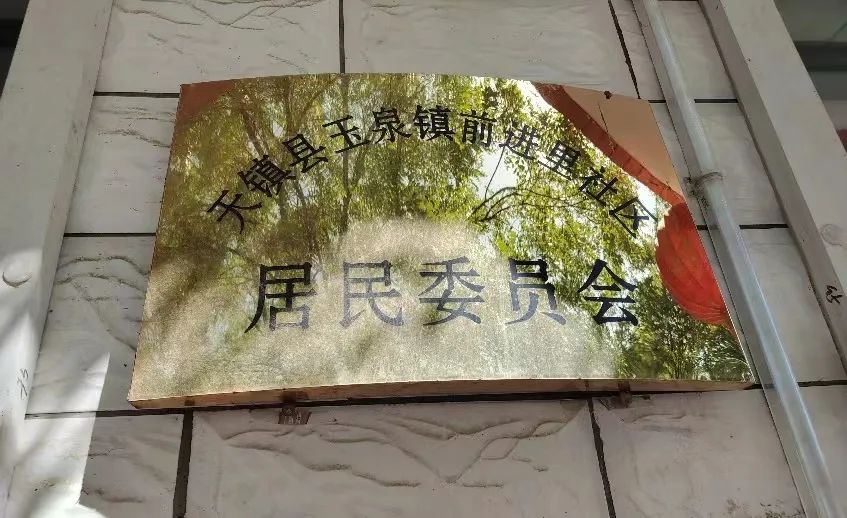 天镇县玉泉镇前进里社区
居民委员会